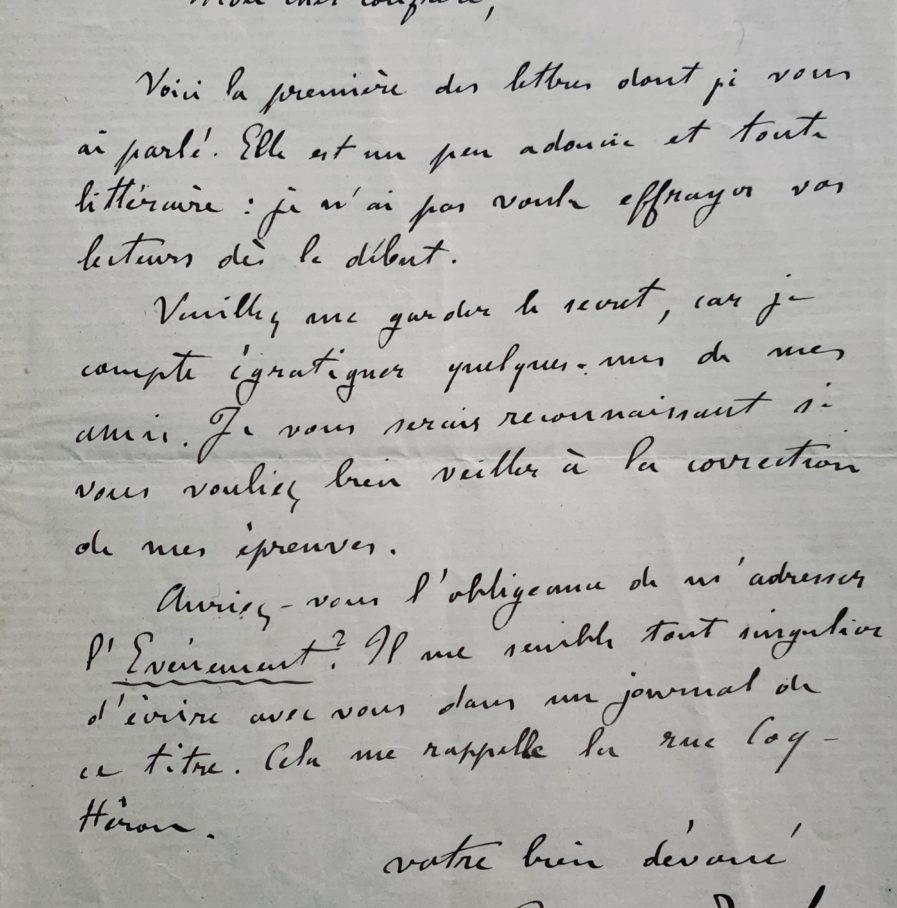 Mon cher confrère,
Voici la première des lettres dont je vous
ai parlé. Elle est un peu adoucie et toute
littéraire : je n'ai pas voulu effrayer vos
lecteurs dès le début.
Veuillez me garder le secret, car je
compte égratigner quelques-uns de mes
amis. Je vous serais reconnaissant si
vous vouliez bien veiller à la correction
de mes épreuves.
Auriez-vous l'obligeance de m'adresser
l'Evénement ? Il me semble tout singulier
d'écrire avec vous dans un journal de
ce titre. Cela me rappelle la rue Coq-
Héron.
votre bien dévoué